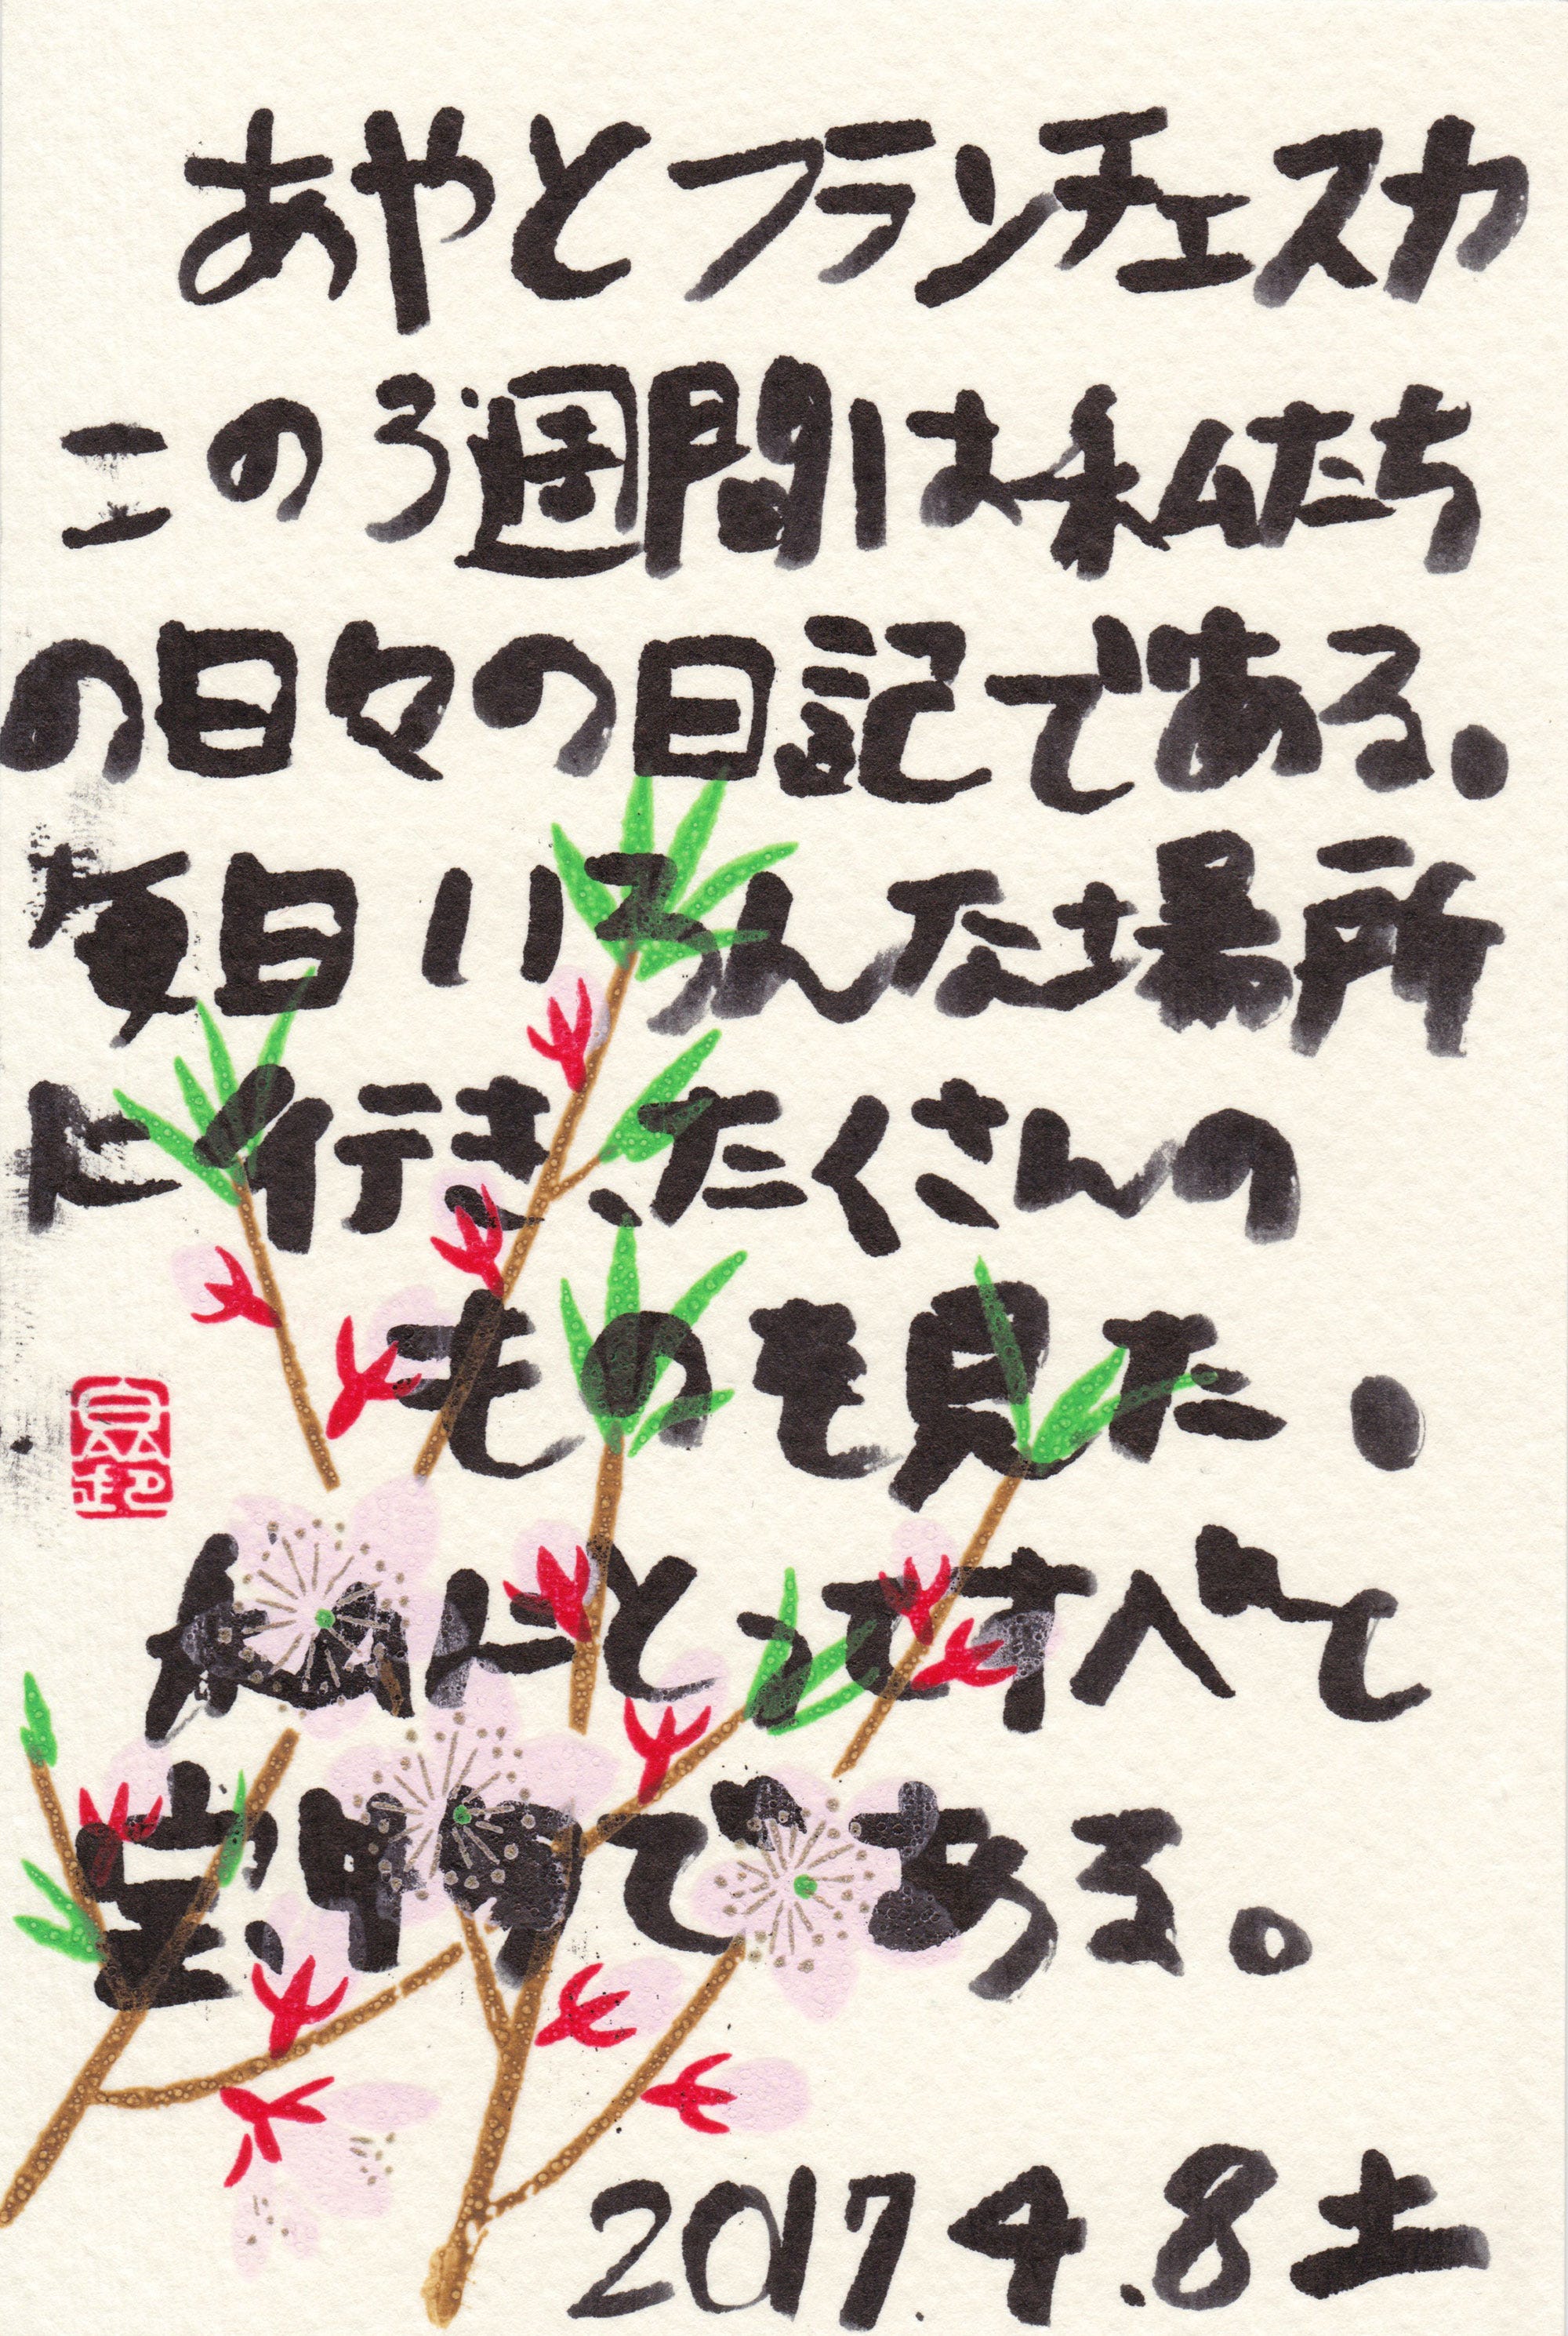 あやとフランチェスカ
この3週間は私たち
の日々の日記である。
毎日いろんな場所
に行き、たくさんの
ものを見た。
私にとってすべて
宝物である。
2017.4.8土